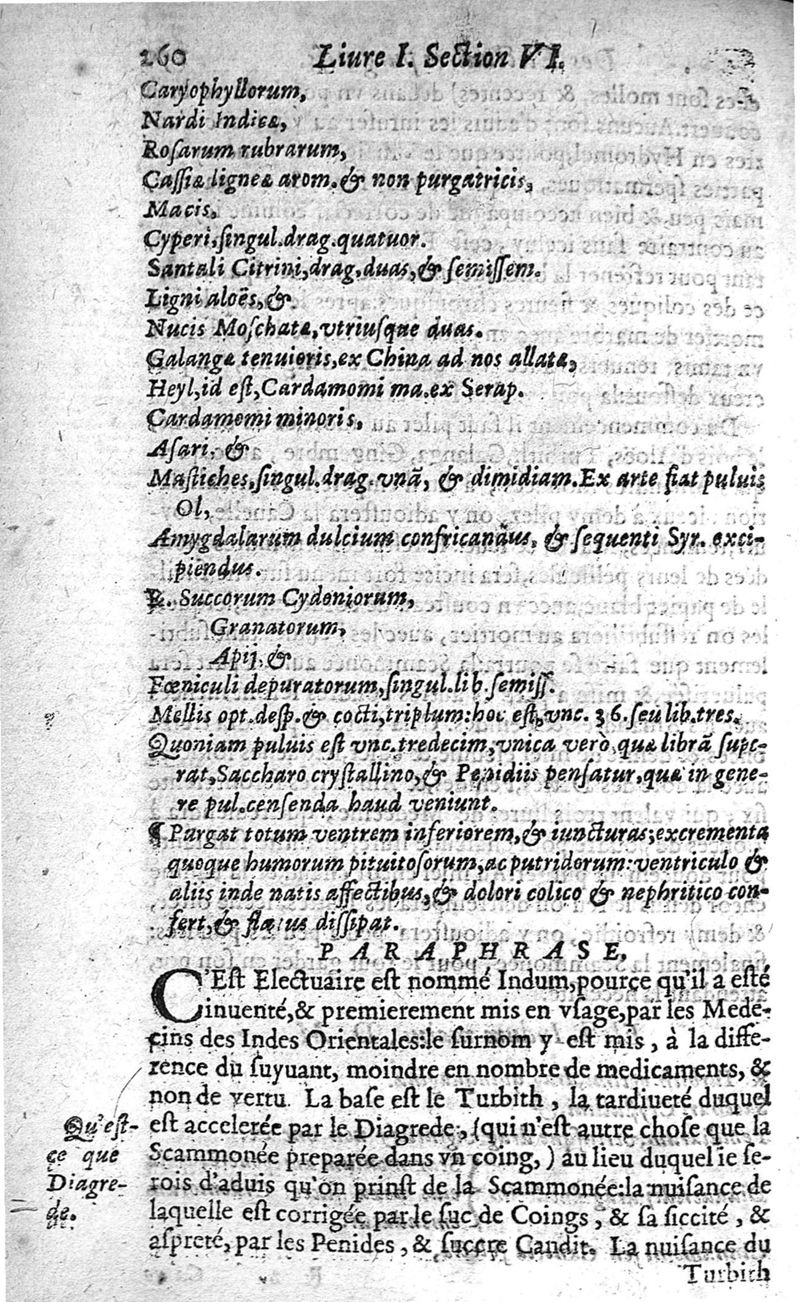 260 Liure I. Section VI.
Caryophyllorum,
Nardi Indicæ,
Rosarum rubrarum,
Cassiæ ligneæ arom. & non purgatricis,
Macis,
Cyperi, singul. drag. quatuor.
Santali Citrini, drag. duas, & semissem.
Ligni aloës, &
Nucis Moschatæ, vtriusque duas.
Galangæ tenuioris, ex China ad nos allatæ,
Heyl, id est, Cardamomi ma. ex Serap.
Cardamomi minoris,
Asari, &
Mastiches, singul. drag. vnã, & dimidiam. Ex arte fiat puluis
Ol,
Amygdalarum dulcium confricandus, & sequenti Syr. exci-
piendus.
℞. Succorum Cydoniorum,
Granatorum,
Apij, &
Fœniculi depuratorum, singul. lib. semiss.
Mellis opt. desp. & cocti, triplum: hoc est, vnc. 36. seu lib. tres.
Quoniam puluis est vnc. tredecim, vnica verò, quæ librã supe-
rat, Saccharo crystallino, & Penidiis pensatur, quæ in gene-
re pul. censenda haud veniunt.
¶ Purgat totum ventrem inferiorem, & iuncturas; excrementa
quoque humorum pituitosorum, ac putridorum: ventriculo &
aliis inde natis affectibus, & dolori colico & nephritico con-
fert, & flatus dissipat.
PARAPHRASE.
C'Est Electuaire est nommé Indum, pource qu'il a esté
inuenté, & premierement mis en vsage, par les Mede-
cins des Indes Orientales: le surnom y est mis, à la diffe-
rence du suyuant, moindre en nombre de medicaments, &
non de vertu. La base est le Turbith, la tardiueté duquel
est acceleree par le Diagrede, (qui n'est autre chose que la
Scammonée preparée dans vn coing,) au lieu duquel ie se-
rois d'aduis qu'on prinst de la Scammonée: la nuisance de
laquelle est corrigée par le suc de Coings, & sa siccité, &
aspreté, par les Penides, & succre Candit. La nuisance du
Turbith
Qu'est-
ce que
Diagre-
de.